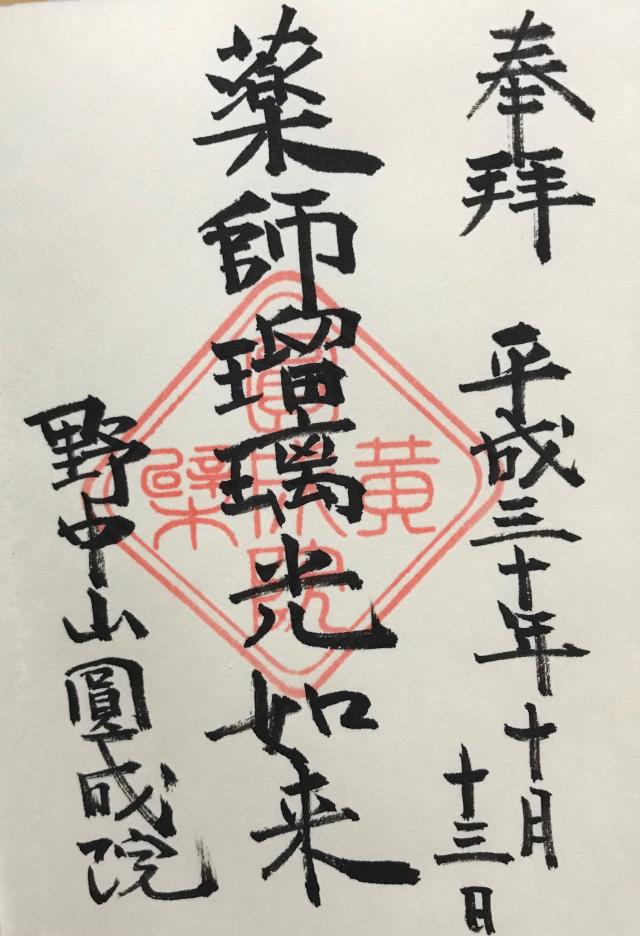 奉拜 平成三十年十月
十三日
薬師瑠璃光如来
野中山圓成院
黄檗
圓成院